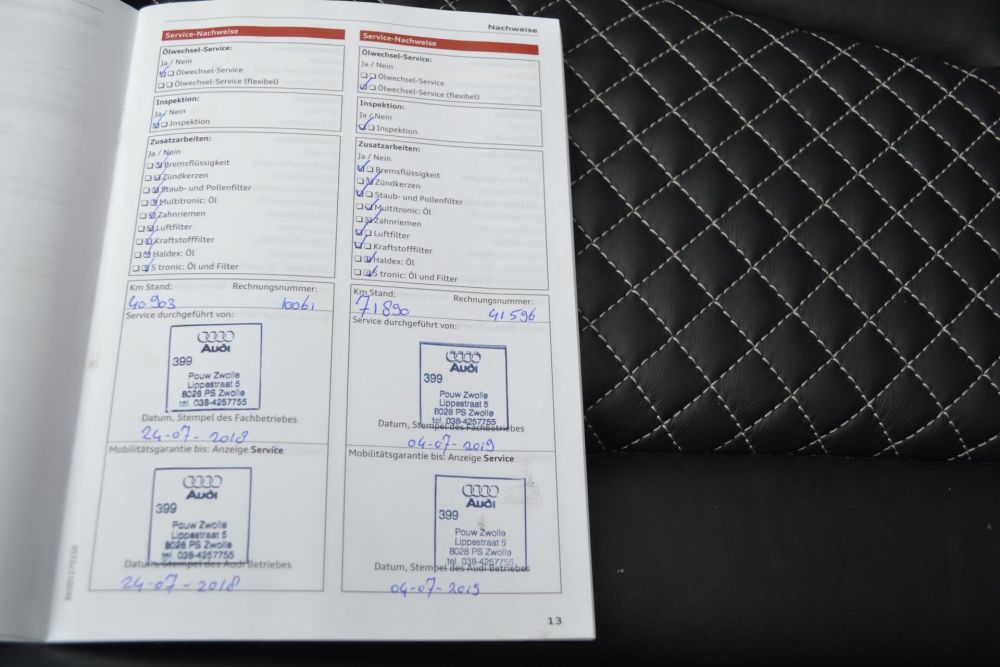 Nachweise
Service-Nachweise
Ölwechsel-Service:
Ja / Nein
Ölwechsel-Service
Ölwechsel-Service (flexibel)
Inspektion:
Ja / Nein
Inspektion
Zusatzarbeiten:
Ja / Nein
Bremsflüssigkeit
Zündkerzen
Staub- und Pollenfilter
Multitronic: Öl
Zahnriemen
Luftfilter
Kraftstofffilter
Haldex: Öl
S tronic: Öl und Filter
Km Stand: Rechnungsnummer:
40903 10061
Service durchgeführt von:
Audi
399
Pouw Zwolle
Lippestraat 5
8028 PS Zwolle
tel. 038-4257755
Datum, Stempel des Fachbetriebes
24-07-2018
Mobilitätsgarantie bis: Anzeige Service
Audi
399
Pouw Zwolle
Lippestraat 5
8028 PS Zwolle
tel. 038-4257755
Datum, Stempel des Audi Betriebes
24-07-2018
Service-Nachweise
Ölwechsel-Service:
Ja / Nein
Ölwechsel-Service
Ölwechsel-Service (flexibel)
Inspektion:
Ja / Nein
Inspektion
Zusatzarbeiten:
Ja / Nein
Bremsflüssigkeit
Zündkerzen
Staub- und Pollenfilter
Multitronic: Öl
Zahnriemen
Luftfilter
Kraftstofffilter
Haldex: Öl
S tronic: Öl und Filter
Km Stand: Rechnungsnummer:
71890 41596
Service durchgeführt von:
Audi
399
Pouw Zwolle
Lippestraat 5
8028 PS Zwolle
tel. 038-4257755
Datum, Stempel des Fachbetriebes
04-07-2019
Mobilitätsgarantie bis: Anzeige Service
Audi
399
Pouw Zwolle
Lippestraat 5
8028 PS Zwolle
tel. 038-4257755
Datum, Stempel des Audi Betriebes
04-07-2019
13